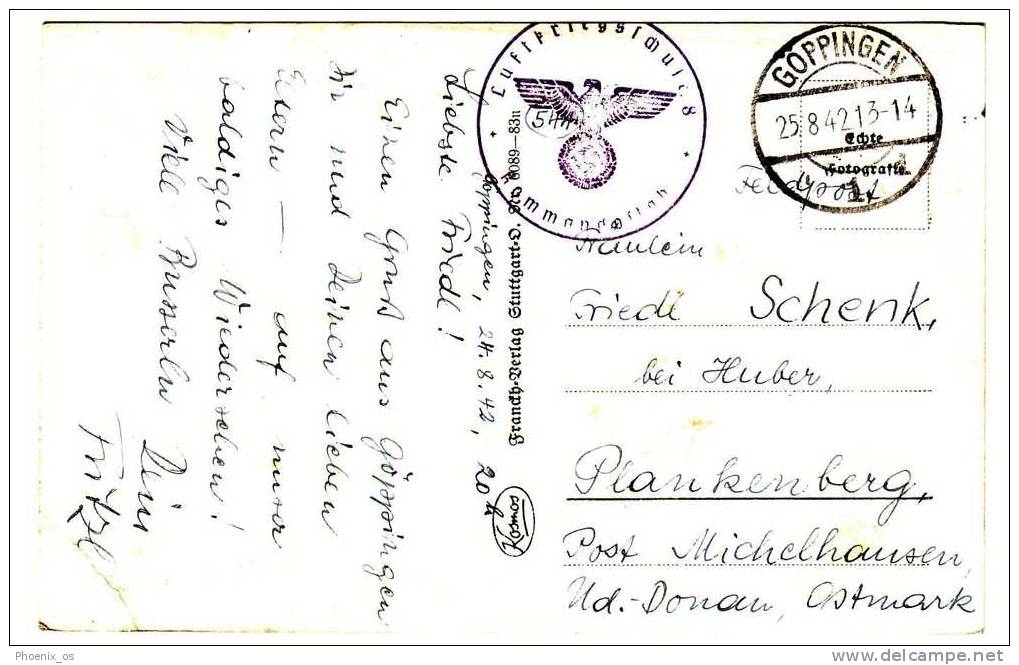 Göppingen, 24.8.42, 20h
Liebste Friedl!
Einen Gruß aus Göppingen
Dir und Deinen lieben
Eltern — auf unser
baldiges Wiedersehen!
Viele Busserln Dein
Fritzl
Luftkriegsschule 8
Kommandostab
Franckh-Verlag Stuttgart
Kosmos
GÖPPINGEN
25.8.42.13-14
Echte
Fotografie
1
Feldpost
Fräulein
Friedl Schenk,
bei Huber,
Plankenberg,
Post Michelhausen,
Nd.-Donau, Ostmark
Phoenix_os
delcampe.net